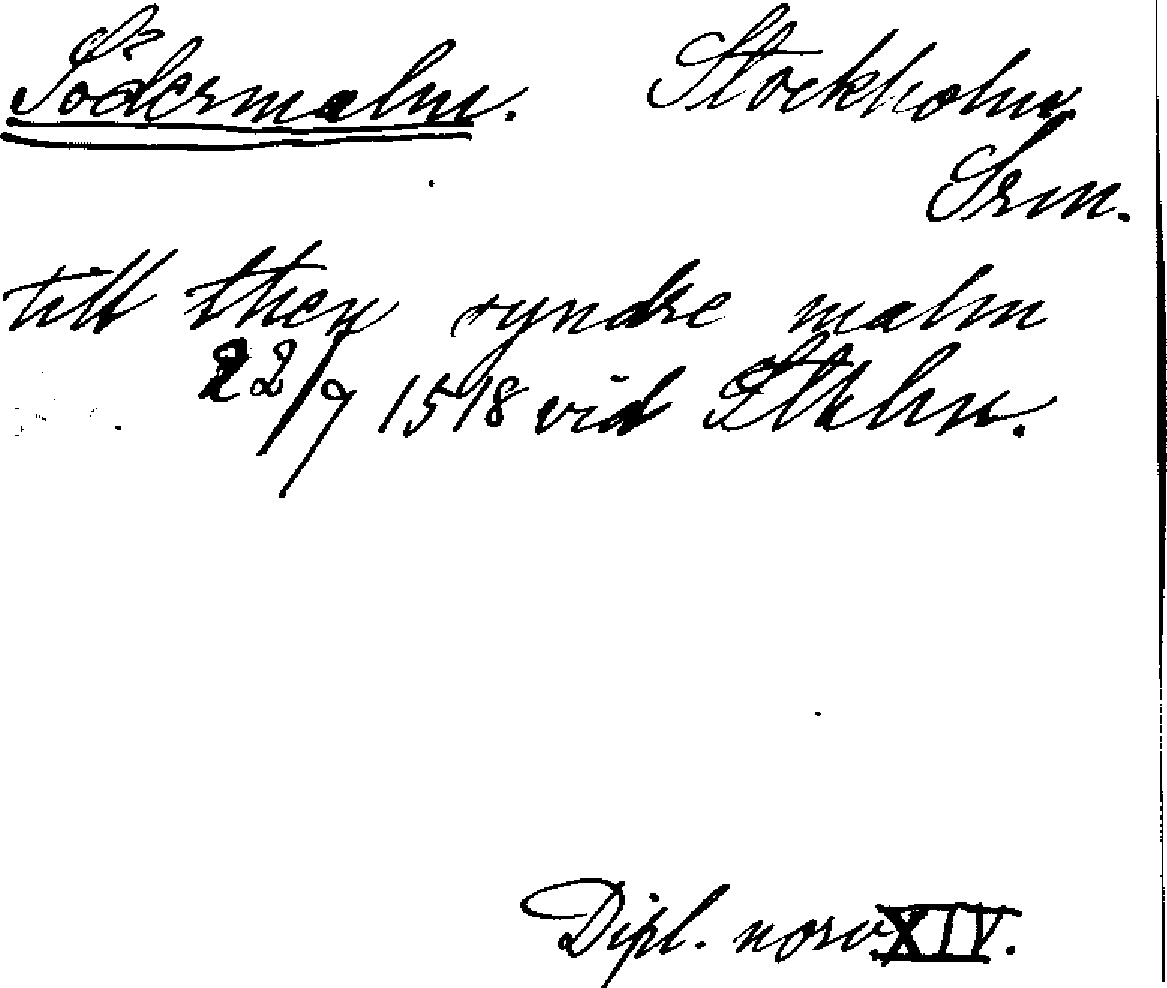 Södermalm. Stockholm
Srm.
till then syndre malm
22/7 1518 vid Stklm.
Dipl. norv. XIV.